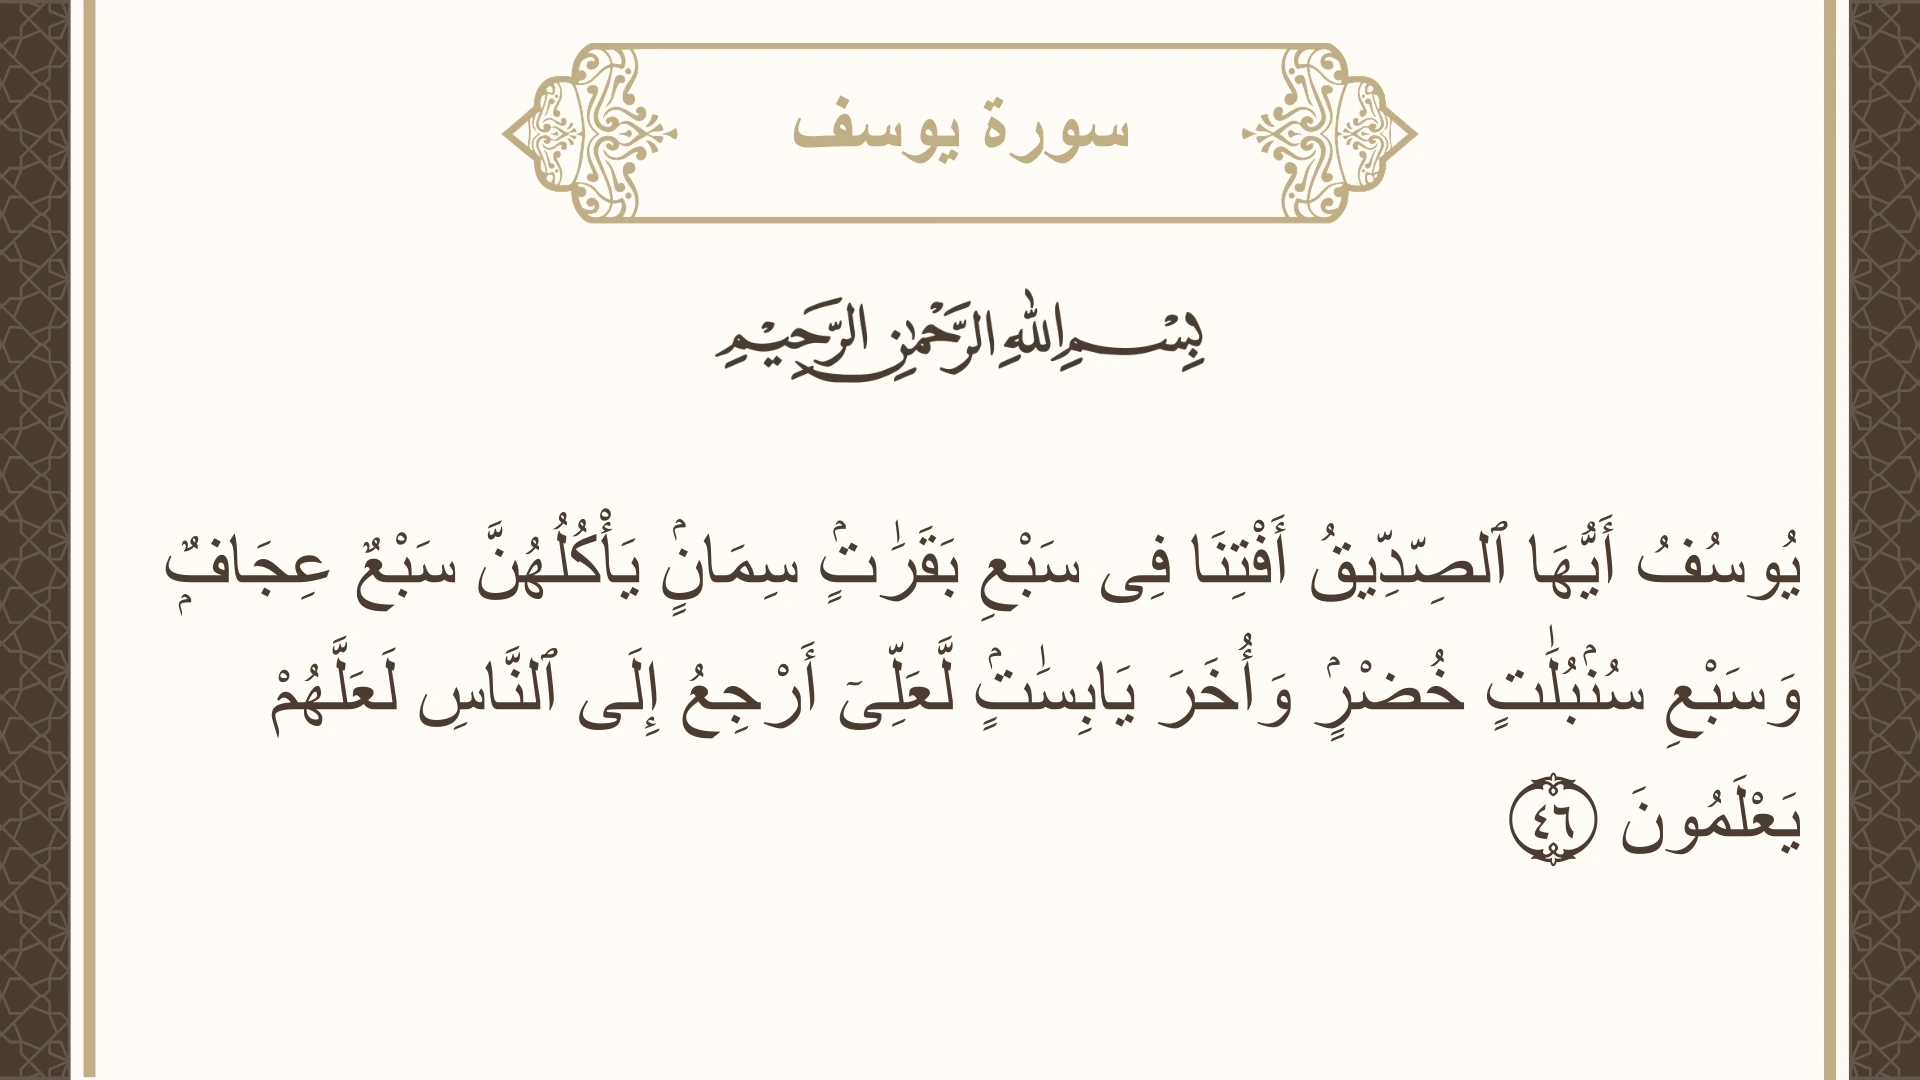 سورة يوسف
بِسْمِ اللهِ الرَّحْمٰنِ الرَّحِيْمِ
يُوسُفُ أَيُّهَا ٱلصِّدِّيقُ أَفْتِنَا فِى سَبْعِ بَقَرَٰتٍۢ سِمَانٍۢ يَأْكُلُهُنَّ سَبْعٌ عِجَافٌۭ
وَسَبْعِ سُنۢبُلَٰتٍ خُضْرٍۢ وَأُخَرَ يَابِسَٰتٍۢ لَّعَلِّىٓ أَرْجِعُ إِلَى ٱلنَّاسِ لَعَلَّهُمْ
يَعْلَمُونَ ٤٦